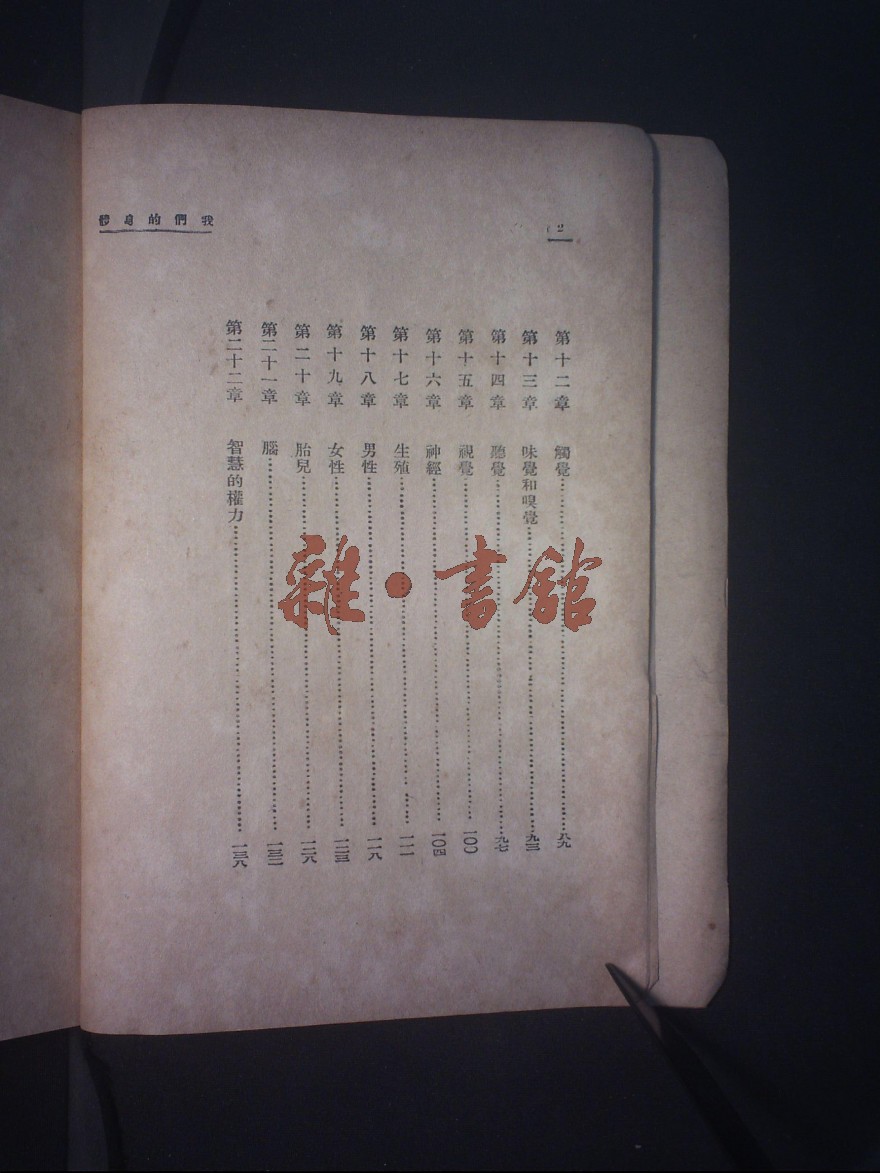 我們的身體
2
第十二章 觸覺……八九
第十三章 味覺和嗅覺……九三
第十四章 聽覺……九七
第十五章 視覺……一〇〇
第十六章 神經……一〇四
第十七章 生殖……一一一
第十八章 男性……一一八
第十九章 女性……一二三
第二十章 胎兒……一二八
第二十一章 腦……一三二
第二十二章 智慧的權力……一三八
雜·書館